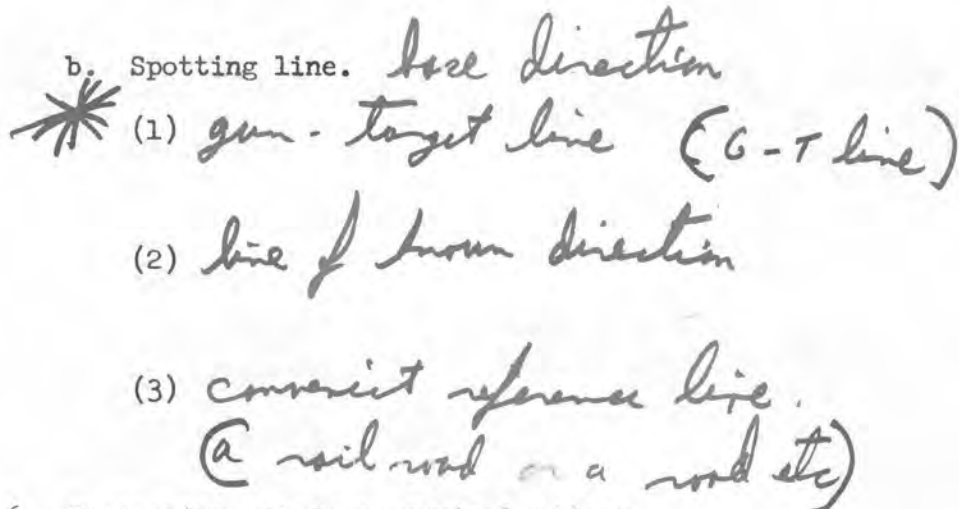 b. Spotting line. base direction
(1) gun - target line (G-T line)
(2) line of known direction
(3) convenient reference line.
(a railroad or a road etc)